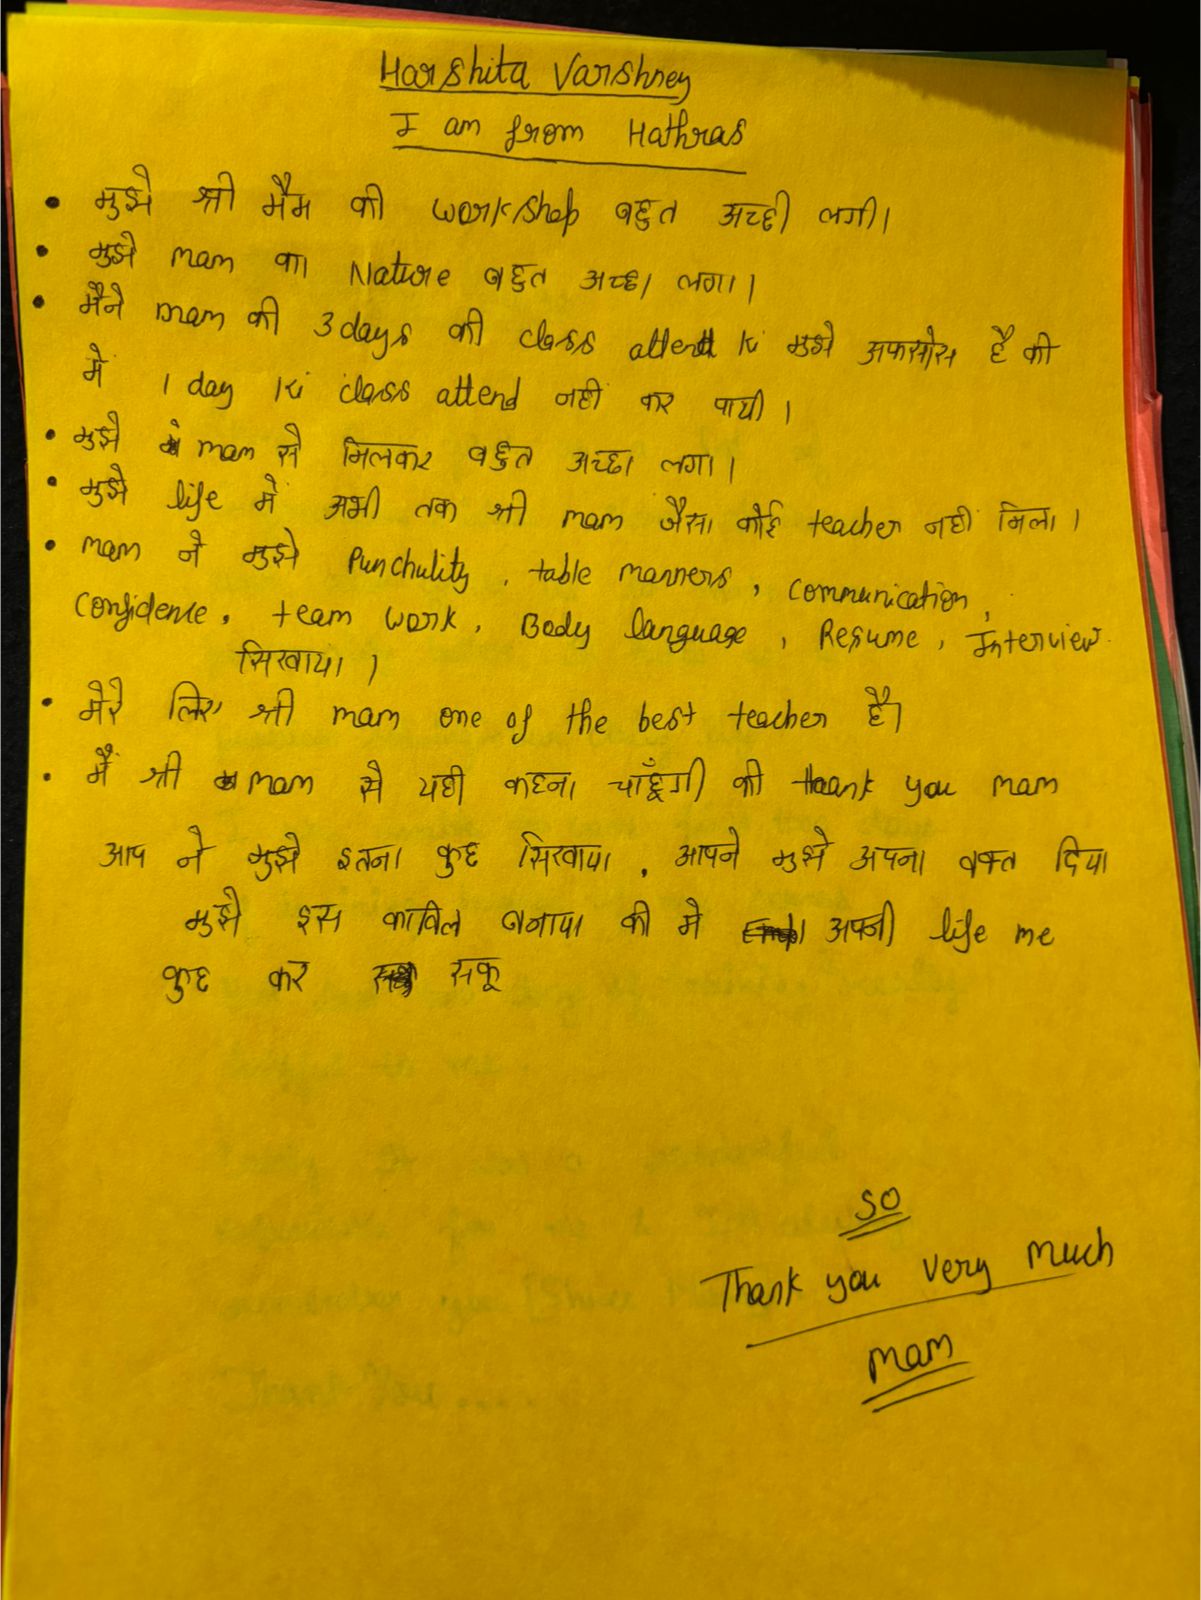 Harshita Varshney
I am from Hathras
• मुझे श्री मैम की workshop बहुत अच्छी लगी।
• मुझे mam का Nature बहुत अच्छा लगा।
• मैने mam की 3 days की class attend ki मुझे अफसोस है की
में 1 day ki class attend नही कर पायी।
• मुझे mam से मिलकर बहुत अच्छा लगा।
• मुझे life में अभी तक श्री mam जैसा कोई teacher नहीं मिला।
• mam ने मुझे Punchulity, table manners, communication,
Confidence, team work, Body language, Resume, Interview
सिखाया।
• मेरे लिए श्री mam one of the best teacher है।
• मैं श्री mam से यही कहना चाहूँगी की thank you mam
आप ने मुझे इतना कुछ सिखाया, आपने मुझे अपना वक्त दिया
मुझे इस काबिल बनाया की मे अपनी life me
कुछ कर सकू
SO
Thank you very much
mam